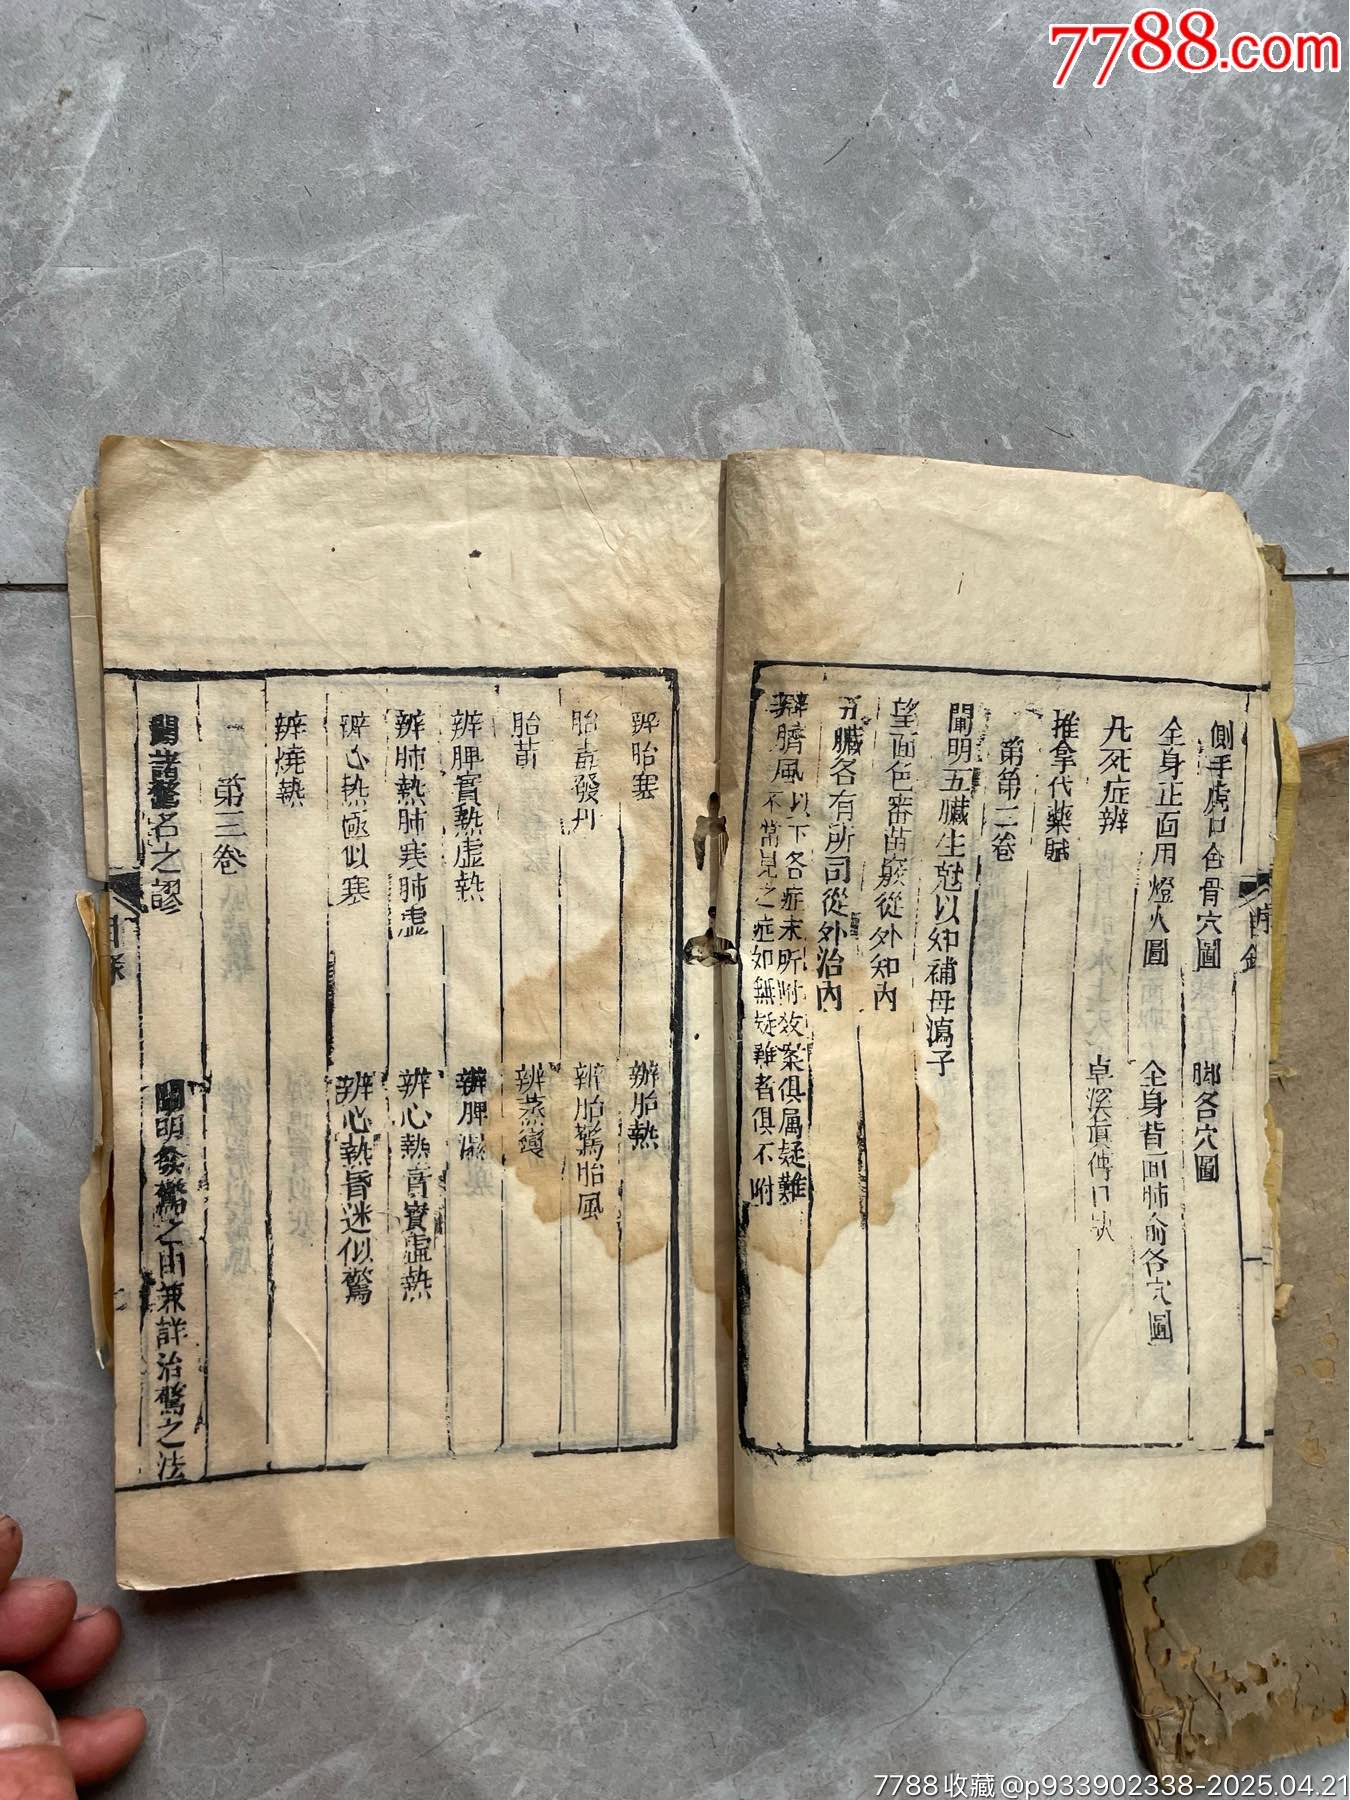 7788.com
側手虎口合骨穴圖　脚各穴圖
全身正面用燈火圖　全身背面肺俞各穴圖
凡死症辨　卓溪真傳口訣
推拿代藥賦
第二卷
闡明五臟生尅以知補母瀉子
望面色審苗竅從外知內
分臟各有所司從外治內
辨臍風以下各症末所附效案俱属疑難
不常見之症如無疑難者俱不附
辨胎寒　辦胎熱
胎毒發丹　辨胎驚胎風
胎黃　辨蒸變
辨脾實熱虛熱　辨脾濕
辨肺熱肺寒肺虛　辨心熱音實虛熱
辨心熱極似寒　辨心熱昏迷似驚
辨燒熱
第三卷
闢諸驚名之謬　闡明發驚之由兼詳治驚之法
目錄
7788收藏@p933902338-2025.04.21